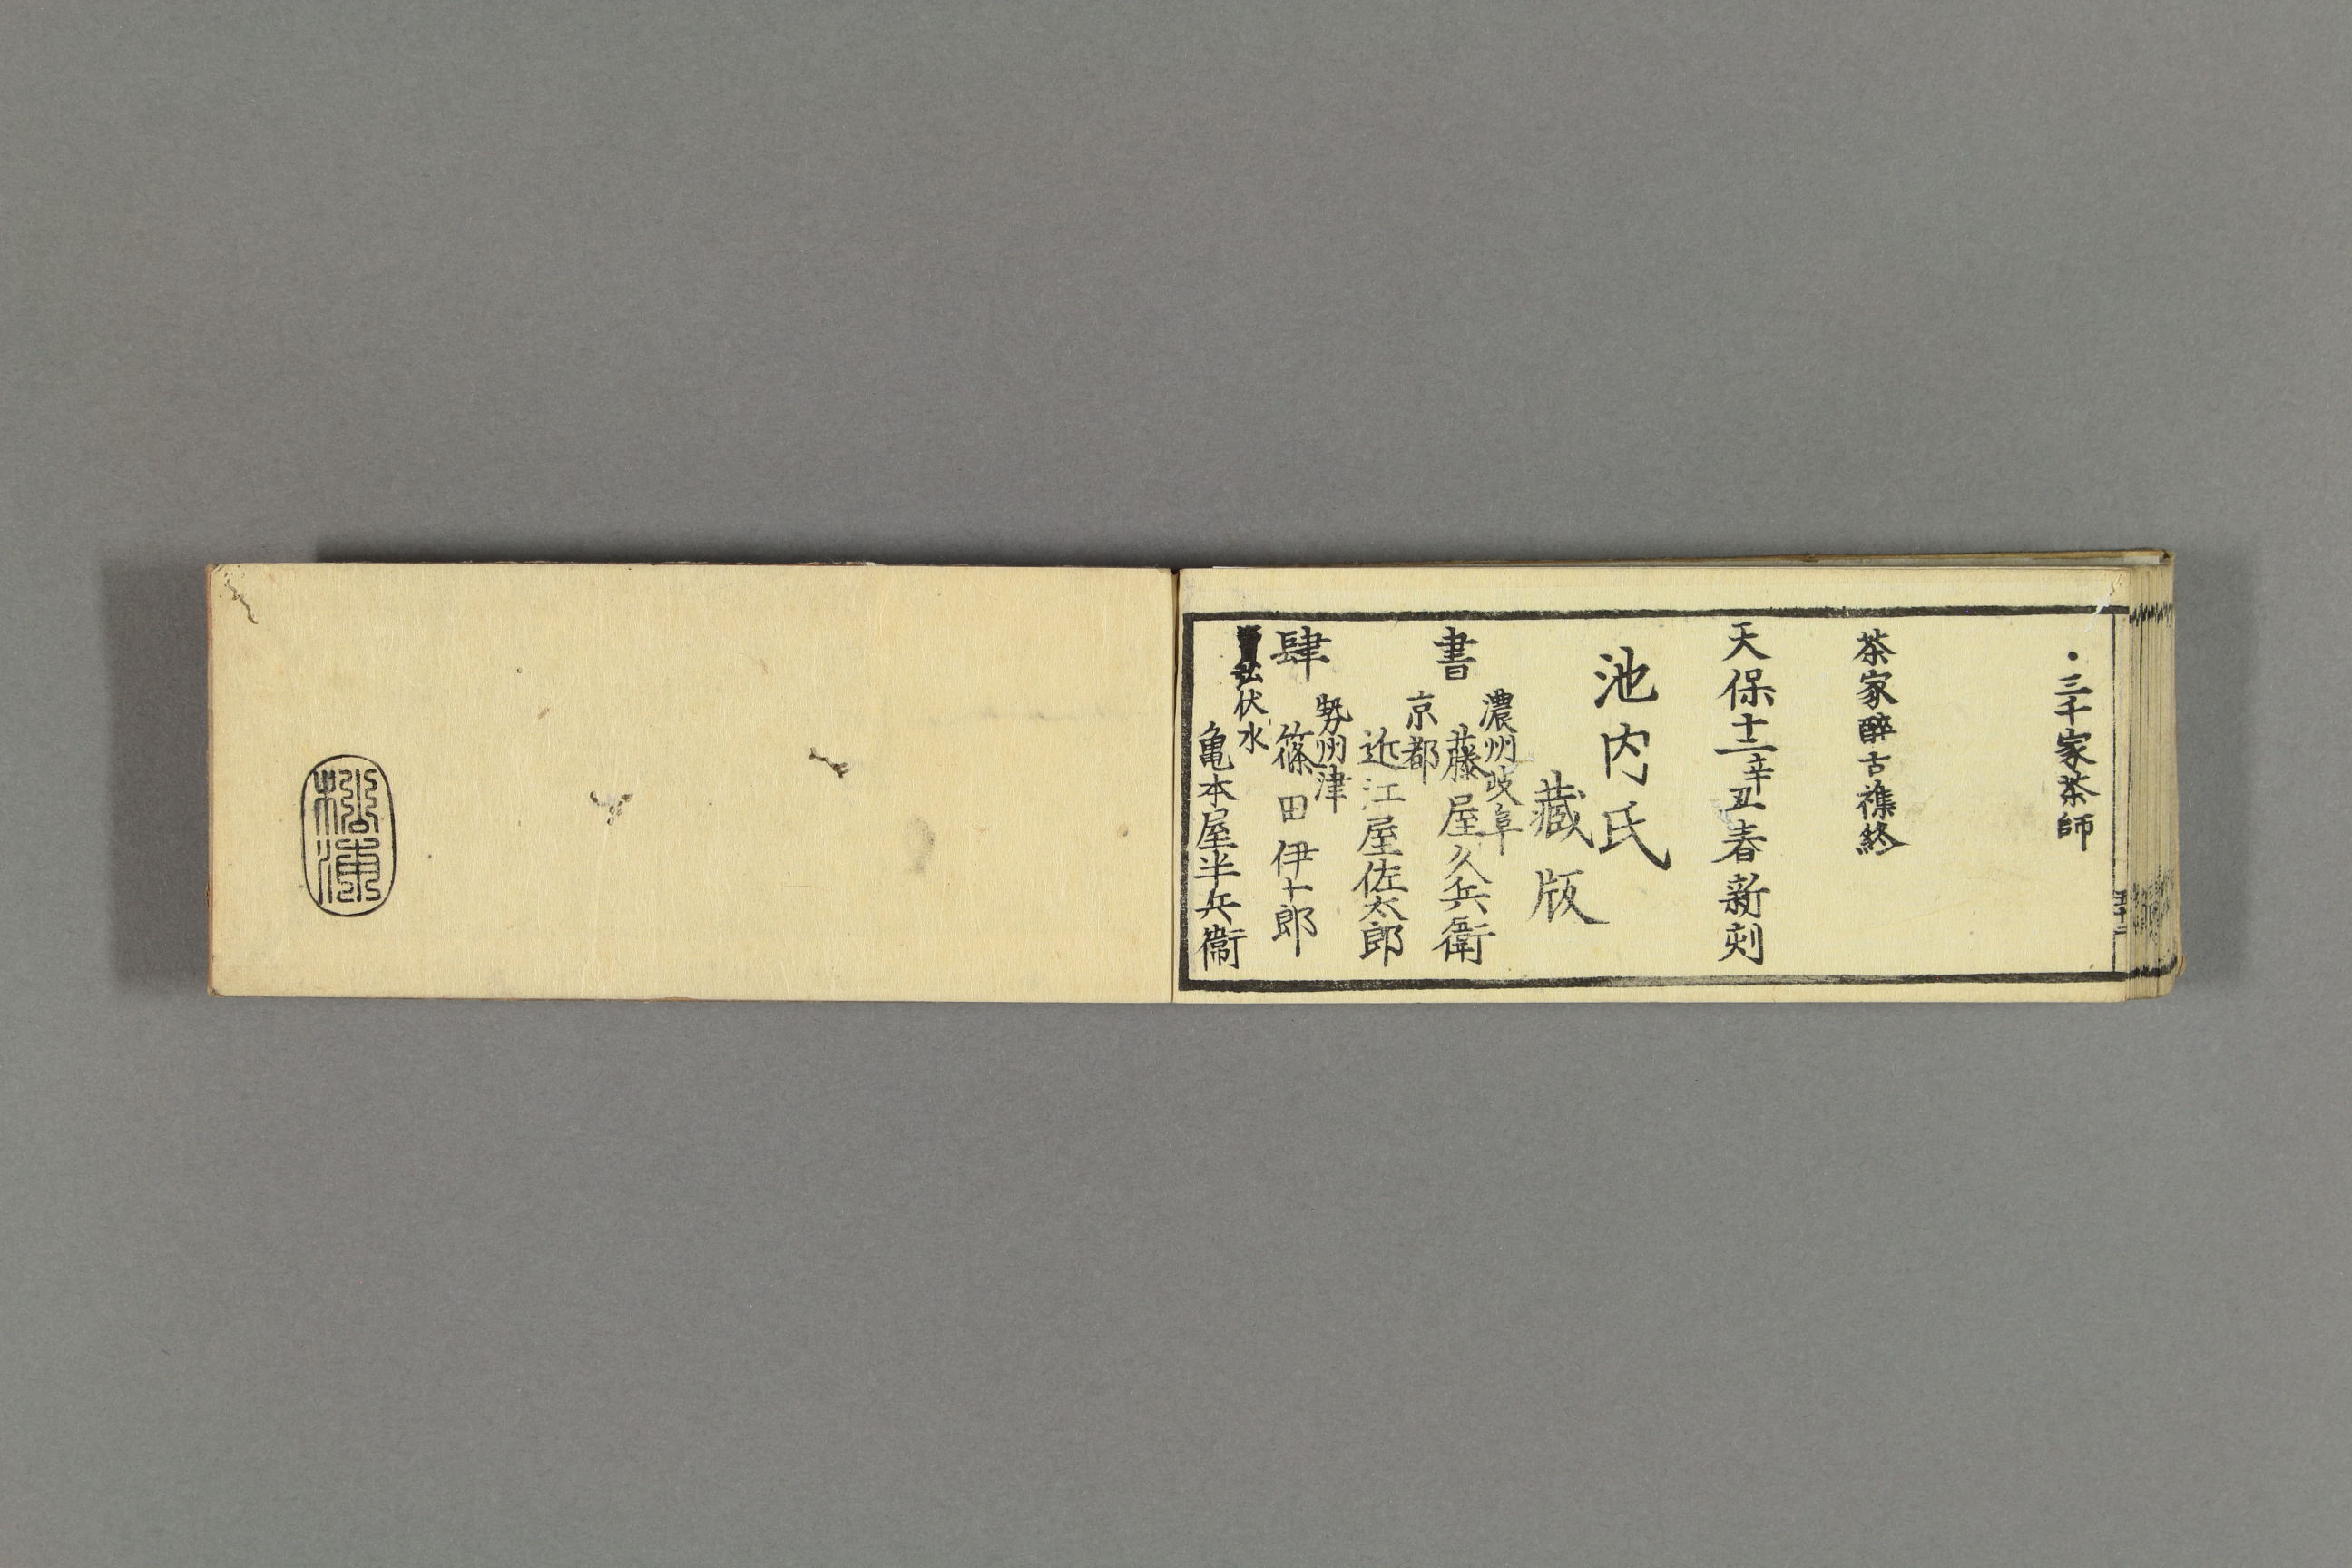 ・三千家茶師
茶家酔古襍終
天保十二辛丑春新刻
池内氏
藏版
書
肆
濃州岐阜
藤屋久兵衛
京都
近江屋佐太郎
勢州津
篠田伊十郎
弘
伏水
亀本屋半兵衛